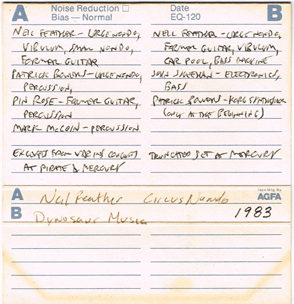 A
Noise Reduction □
Bias — Normal
Date
EQ-120
B
NEIL FEATHER - URGE NONDO,
VIBULUM, SMALL NONDO,
FORMER GUITAR
PATRICK BOWENS - URGE NONDO,
PERCUSSION,
PIN ROSE - FORMER GUITAR,
PERCUSSION
MARK MCCOIN - PERCUSSION
EXCERPTS FROM VARIOUS CONCERTS
AT PIRATE & MERCURY
NEIL FEATHER - URGE NONDO,
FORMER GUITAR, VIBULUM,
CAR POOL, BASS MACHINE
- ELECTRONICS,
BASS
PATRICK BOWENS - KORG SYNTHESIZER
(ONLY AT THE BEGINNING)
TRUNCATED SET AT MERCURY
A
Neil Feather Circus Nondo
AGFA
B
Dynosaur Music
1983